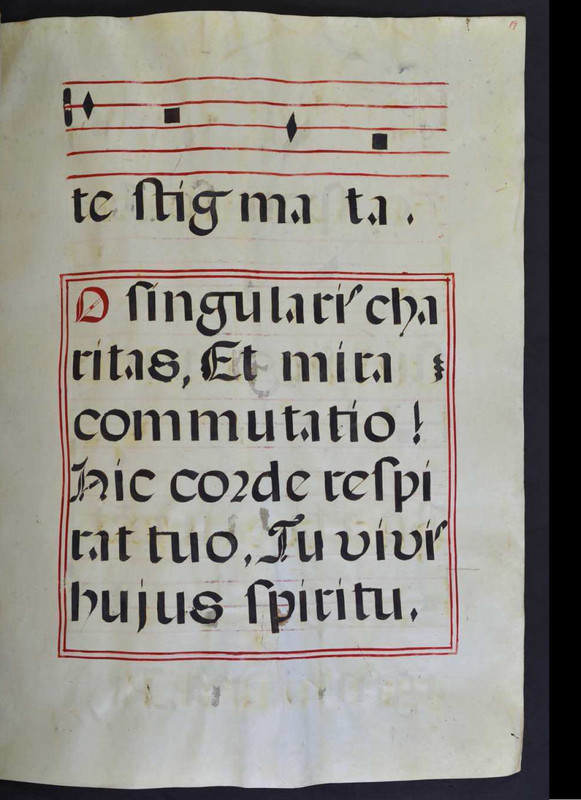 te stig ma ta.
O singularis cha
ritas, Et mira
commutatio!
Hic corde respi
rat tuo, Tu vivis
hujus spiritu.